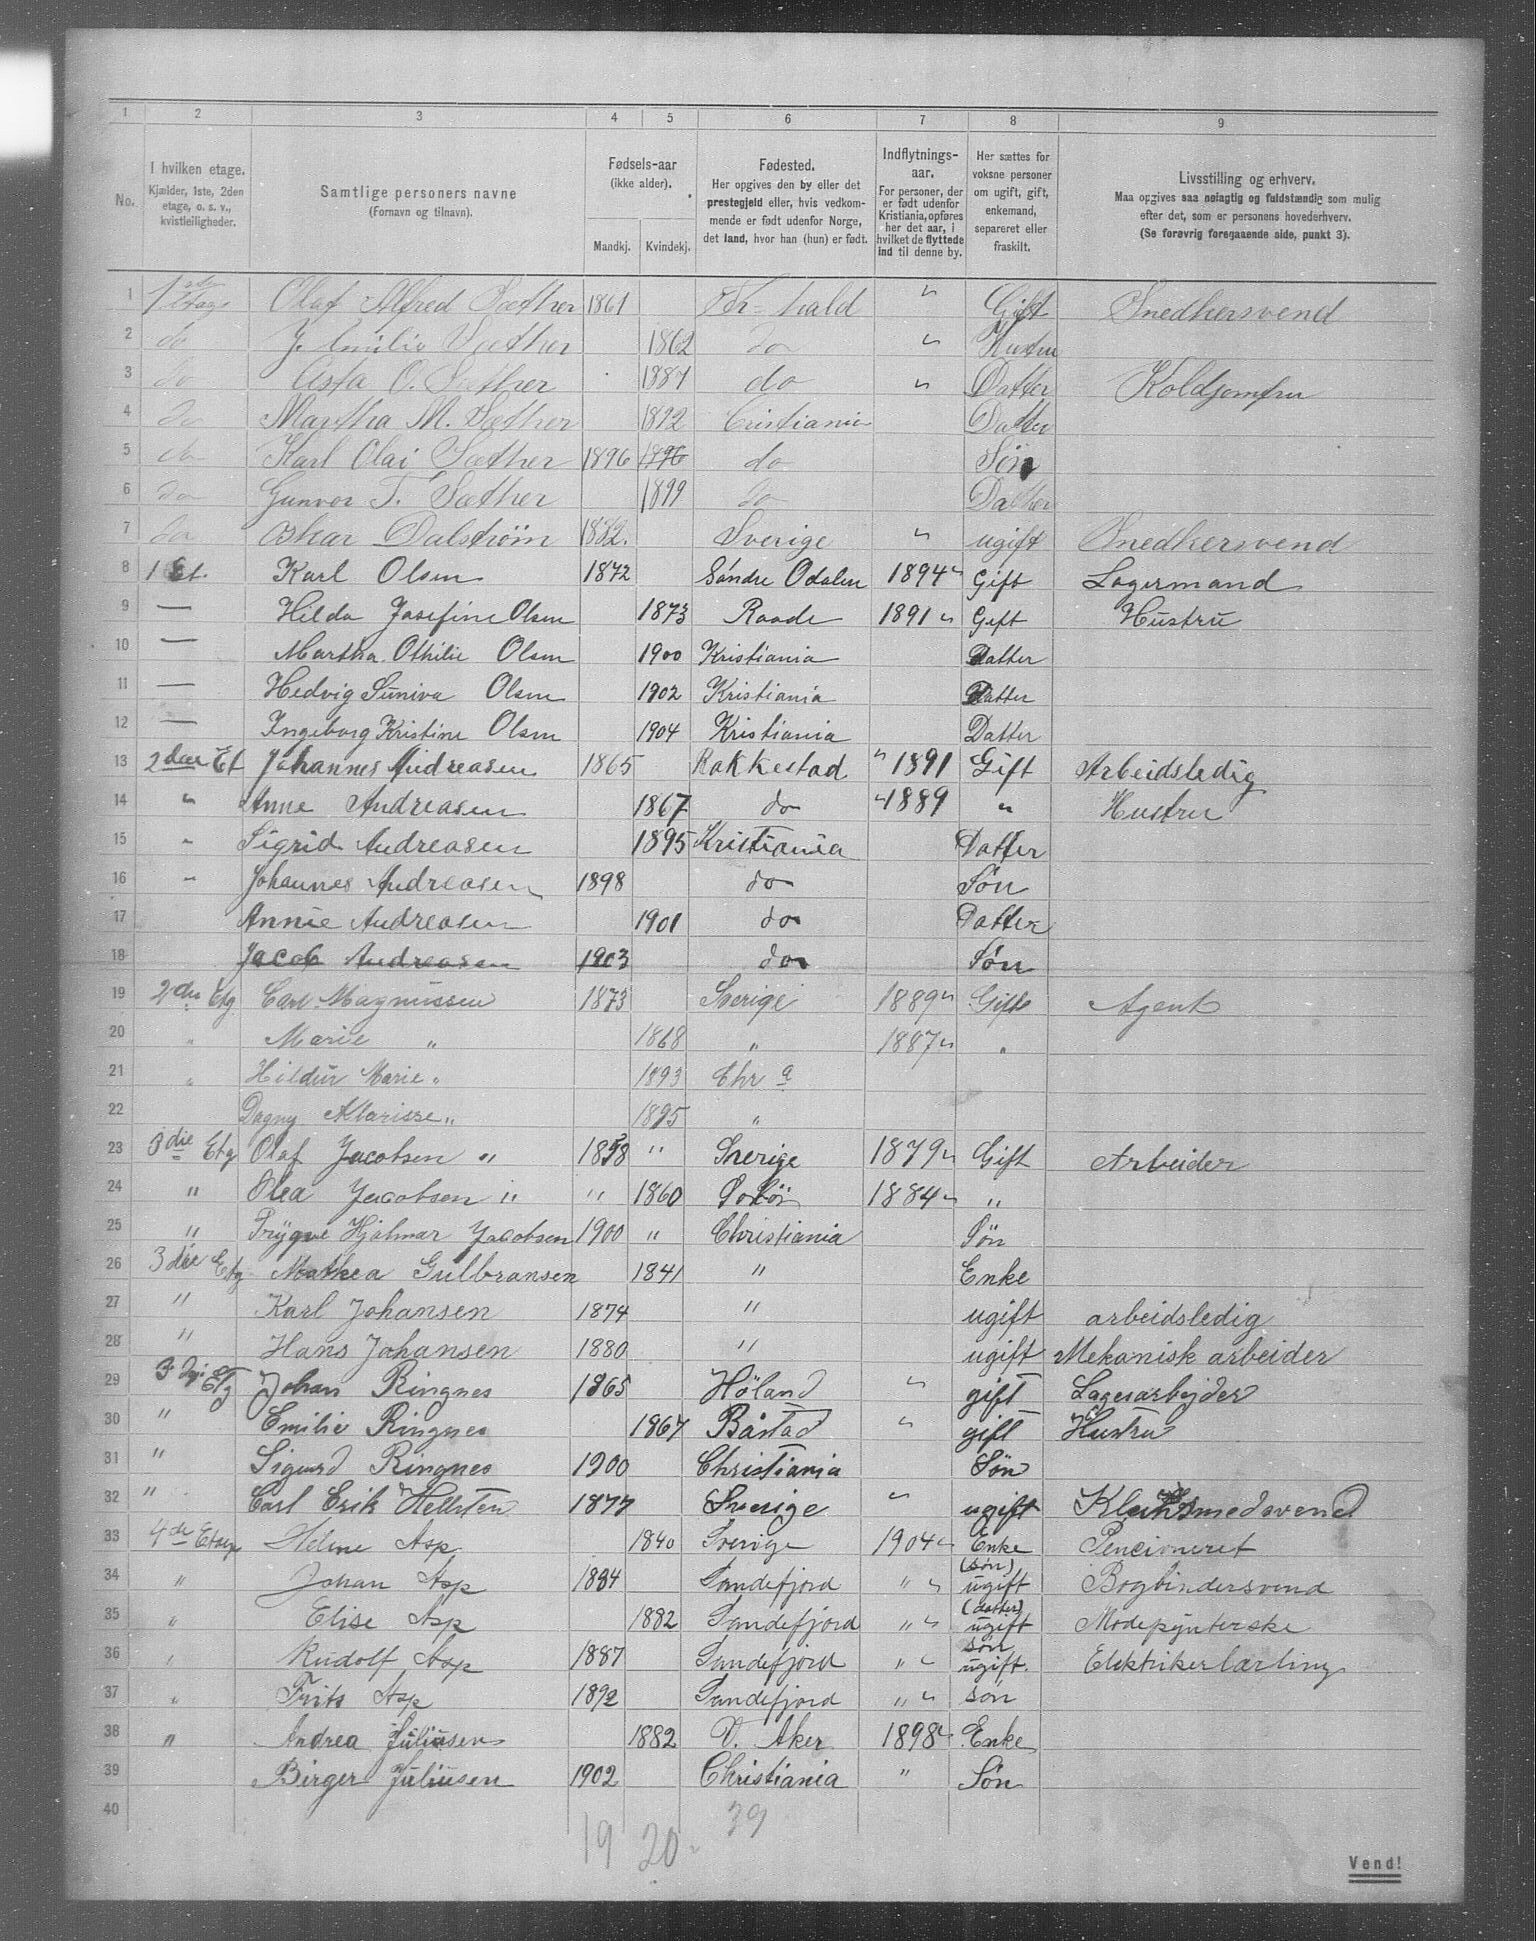 1 2 3 4 5 6 7 8 9
No. I hvilken etage. Kjælder, 1ste, 2den etage, o. s. v., kvistleiligheder. Samtlige personers navne (Fornavn og tilnavn). Fødsels-aar (ikke alder). Mandkj. Kvindekj. Fødested. Her opgives den by eller det prestegjeld eller, hvis vedkommende er født udenfor Norge, det land, hvor han (hun) er født. Indflytnings-aar. For personer, der er født udenfor Kristiania, opføres her det aar, i hvilket de flyttede ind til denne by. Her sættes for voksne personer om ugift, gift, enkemand, separeret eller fraskilt. Livsstilling og erhverv. Maa opgives saa nøiagtig og fuldstændig som mulig efter det, som er personens hovederhverv. (Se forøvrig foregaaende side, punkt 3).
1 1ste Etage Olaf Alfred Sæther 1861 Fr-hald " Gift Snedkersvend
2 do J. Emilie Sæther 1862 do " Hustru
3 do Asta O. Sæther 1887 do " Datter Koldjomfru
4 do Martha M. Sæther 1892 Cristiania Datter
5 do Karl Olai Sæther 1896 1896 do Søn
6 do Gunvor T. Sæther 1899 do Datter
7 do Oskar Dalstrøm 1882. Sverige " ugift Snedkersvend
8 1 Et. Karl Olsen 1872 Søndre Odalen 1894 " Gift Lagermand
9 — Hilda Josefine Olsen 1873 Raade 1891 " Gift Hustru
10 — Martha Othilie Olsen 1900 Kristiania Datter
11 — Hedvig Suniva Olsen 1902 Kristiania Datter
12 — Ingeborg Kristine Olsen 1904 Kristiania Datter
13 2den Et Johannes Andreasen 1865 Rakkestad " 1891 Gift Arbeidsledig
14 " Anne Andreasen 1867 do " 1889 " Hustru
15 " Sigrid Andreasen 1895 Kristiania Datter
16 " Johannes Andreasen 1898 do Søn
17 Annie Andreasen 1901 do Datter
18 Jacob Andreasen 1903 do Søn
19 2den Etg Carl Magnussen 1873 Sverige 1889 " Gift Agent
20 " Marie " 1868 " 1887 " "
21 " Hildur Marie " 1893 Chr a
22 Dagny Klarisse " 1895 "
23 3die Etg Olaf Jacobsen " 1858 " Sverige 1879 " Gift Arbeider
24 " Olea Jacobsen " " 1860 Solør 1884 " "
25 " Trygve Hjalmar Jacobsen 1900 " Christiania Søn
26 3die Etg Mathea Gulbransen 1841 " Enke
27 " Karl Johansen 1874 " ugift arbeidsledig
28 " Hans Johansen 1880 " ugift Mekanisk arbeider
29 3dje Etg Johan Ringnes 1865 Höland " gift Lagerarbejder
30 " Emilie Ringnes 1867 Båstad " gift Hustru
31 " Sigurd Ringnes 1900 Christiania Søn
32 " Carl Erik Hellsten 1877 Sverige " ugift Kleinsmedsvend
33 4de Etage Helene Asp 1840 Sverige 1904 " Enke Pencioneret
34 " Johan Asp 1884 Sandefjord " " (søn) ugift Bogbindersvend
35 " Elise Asp 1882 Sandefjord " " (datter) ugift Modepynterske
36 " Rudolf Asp 1887 Sandefjord " " søn ugift. Elektrikerlærling
37 " Frits Asp 1892 Sandefjord " " søn
38 " Andrea Juliusen 1882 V. Aker 1898 " Enke
39 Birger Juliusen 1902 Christiania " Søn
40
19 20 39
Vend!